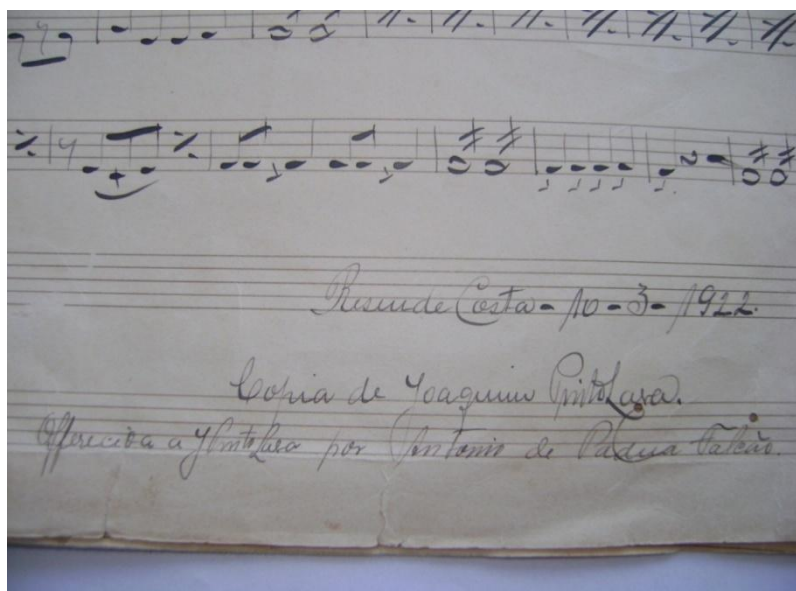 Resende Costa - 10 - 3 - 1922.
Copia de Joaquim Pinto Lara.
Offerecida a J Pinto Lara por Antonio de Padua Falcão.